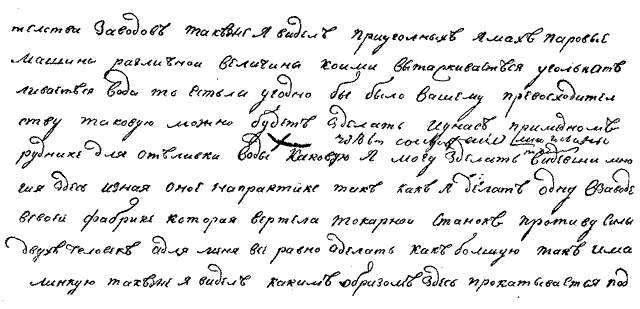 телства Заводовъ такъже Я виделъ приуголныхъ Ямахъ паровые
машины различной величины коими вытаскивается уголь и от
ливается вода то естьли угодно бы было вашему превосходител
ству таковую можно будетъ зделать и унасъ при медномъ
руднике для отъливки воды каковую Я могу зделать видевши мно
гия здесь изная оное напрактике такъ какъ Я делать одну взаводе
всвоей фабрике которая вертела токарной станокъ противу силы
двухъ человекъ адля меня всё равно зделать какъ болшую такъ има
линкую такъже я виделъ какимъ образомъ здесь прокатывается под